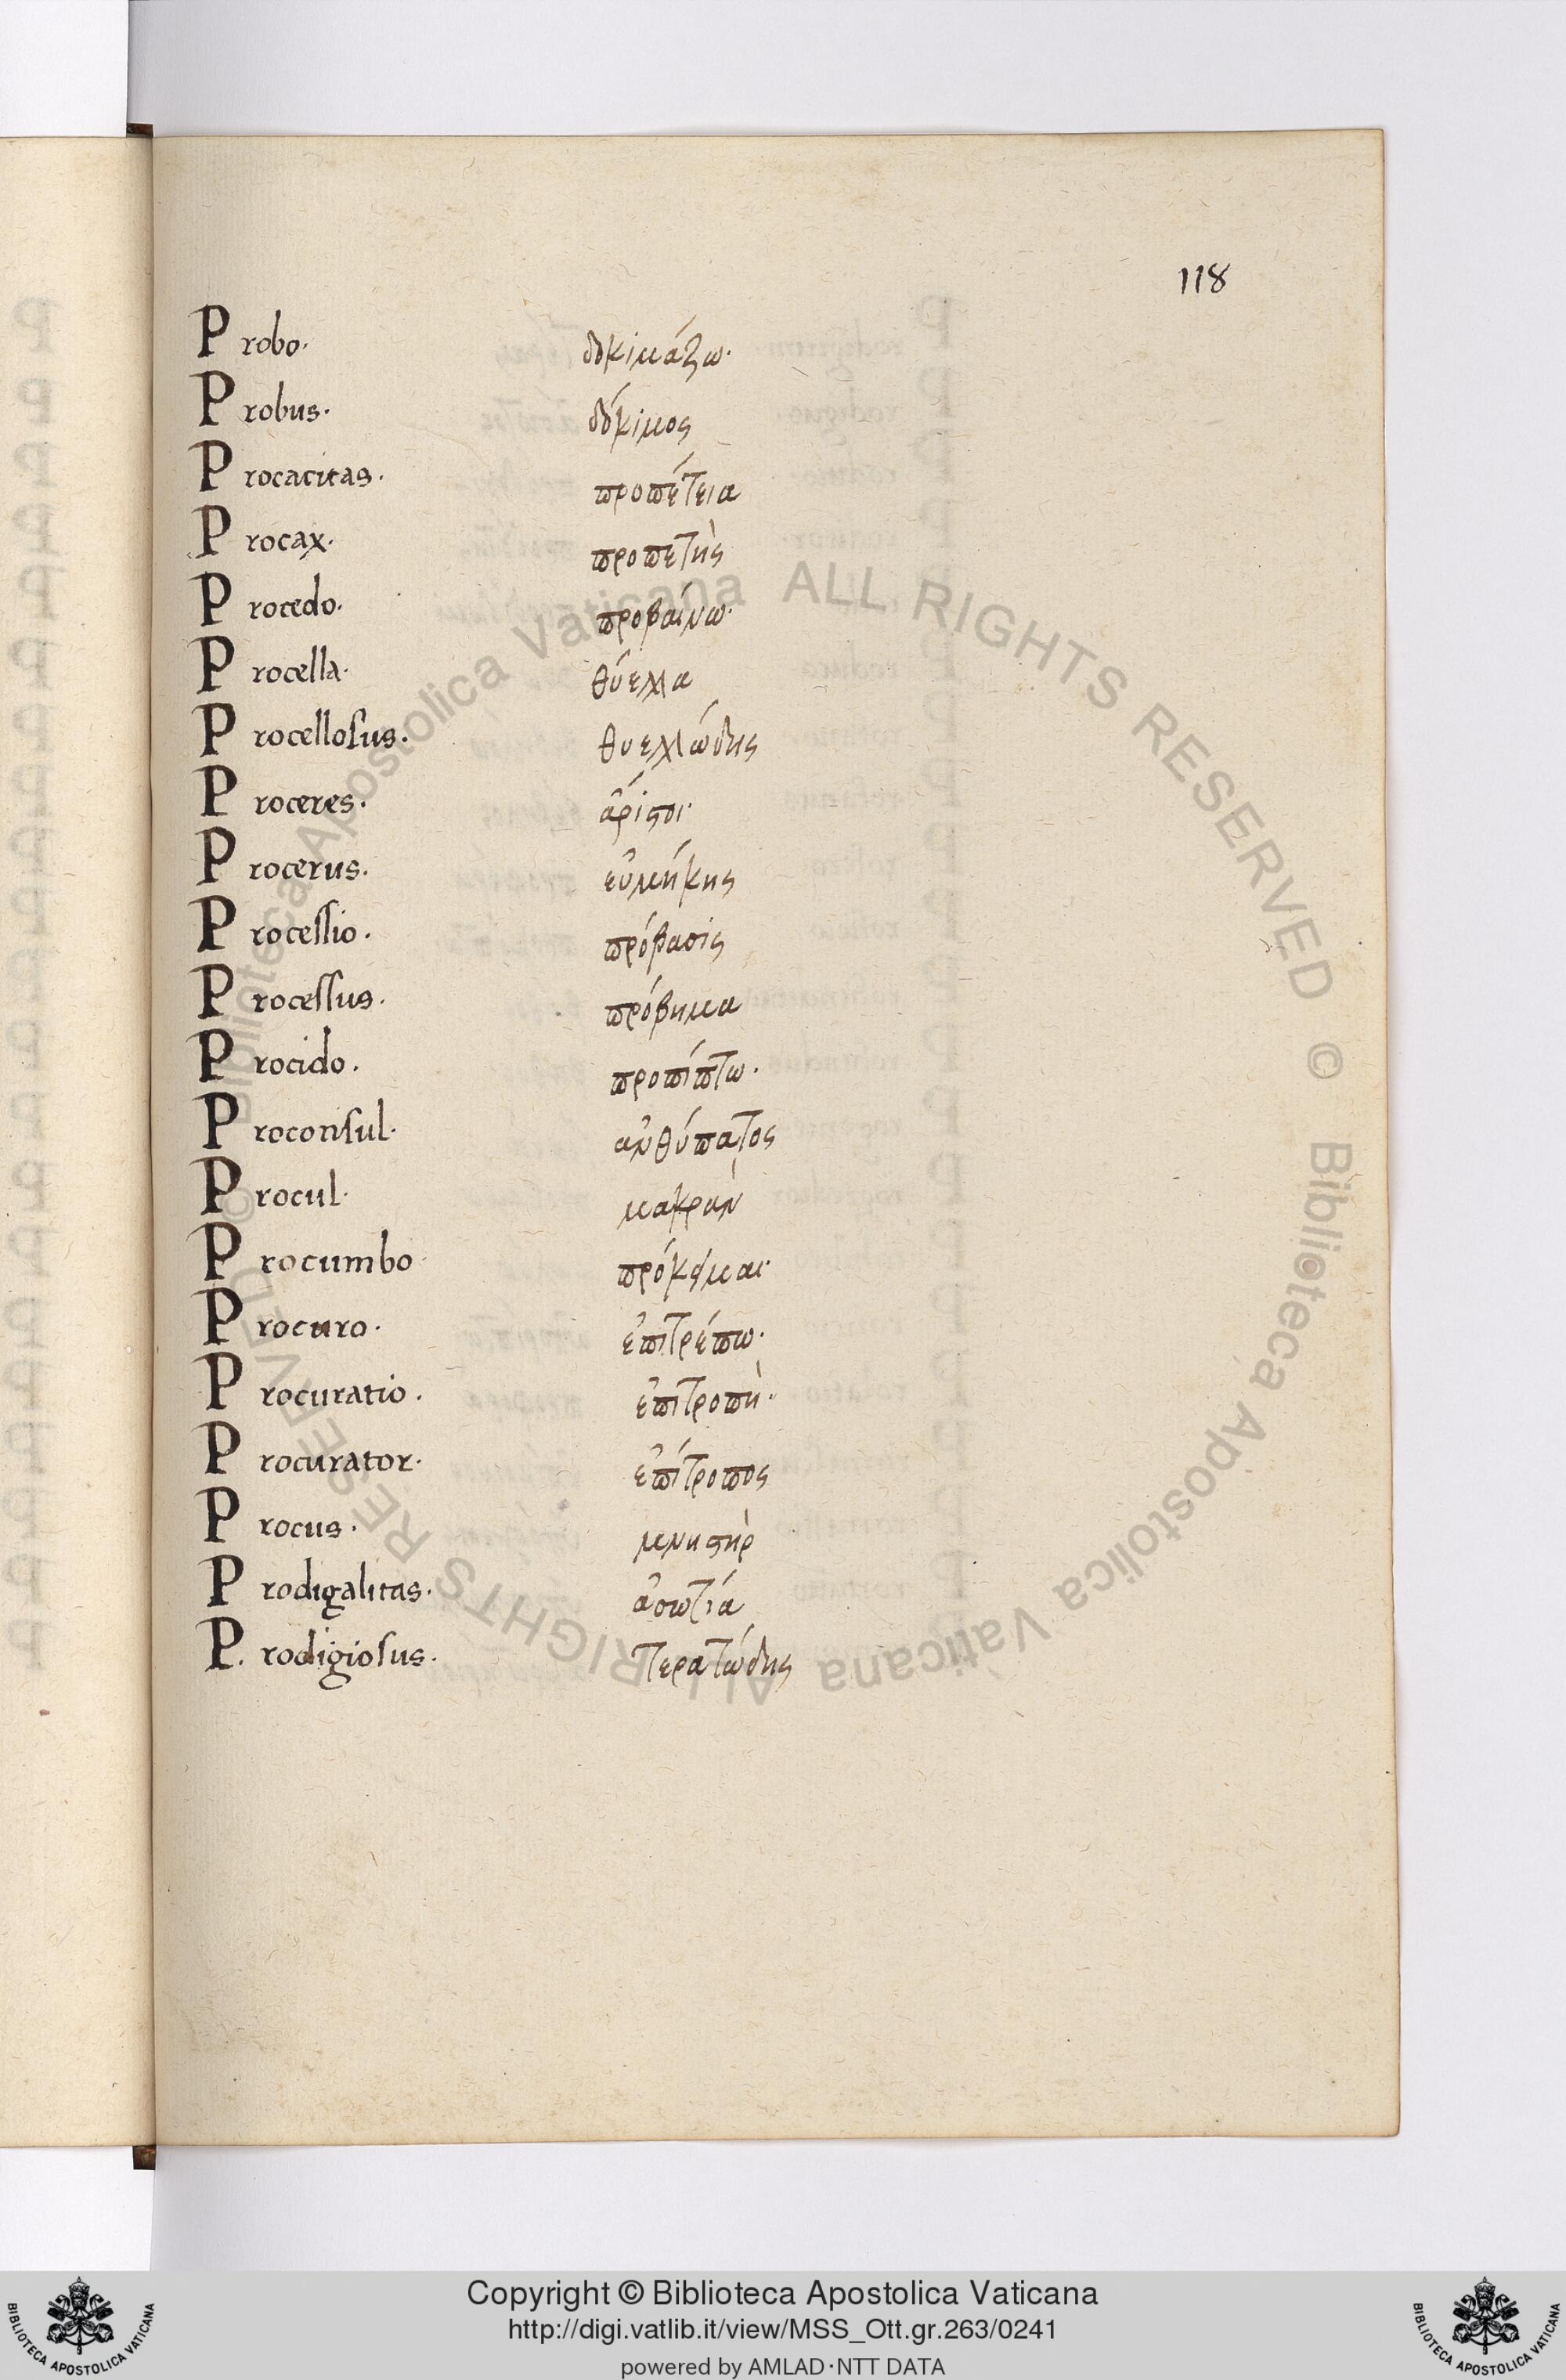 118
Probo. δοκιμάζω.
Probus. δόκιμος
Procacitas. προπέτεια
Procax. προπετὴς
Procedo. προβαίνω.
Procella. θύελλα
Procellosus. θυελλώδης
Proceres. ἄριστοι.
Procerus. εὐμήκης
Processio. πρόβασις
Processus. πρόβημα
Procido. προπίπτω.
Proconsul. ἀνθύπατος
Procul. μακρὰν
Procumbo. πρόκειμαι.
Procuro. ἐπιτρέπω.
Procuratio. ἐπιτροπὴ.
Procurator. ἐπίτροπος
Procus. μνηστὴρ
Prodigalitas. ἀσωτιά
P. rodigiosus. τερατώδης
© Biblioteca Apostolica Vaticana ALL RIGHTS RESERVED © Biblioteca Apostolica Vaticana ALL RIGHTS RESERVED
Copyright © Biblioteca Apostolica Vaticana
http://digi.vatlib.it/view/MSS_Ott.gr.263/0241
powered by AMLAD·NTT DATA
BIBLIOTECA APOSTOLICA VATICANA
BIBLIOTECA APOSTOLICA VATICANA